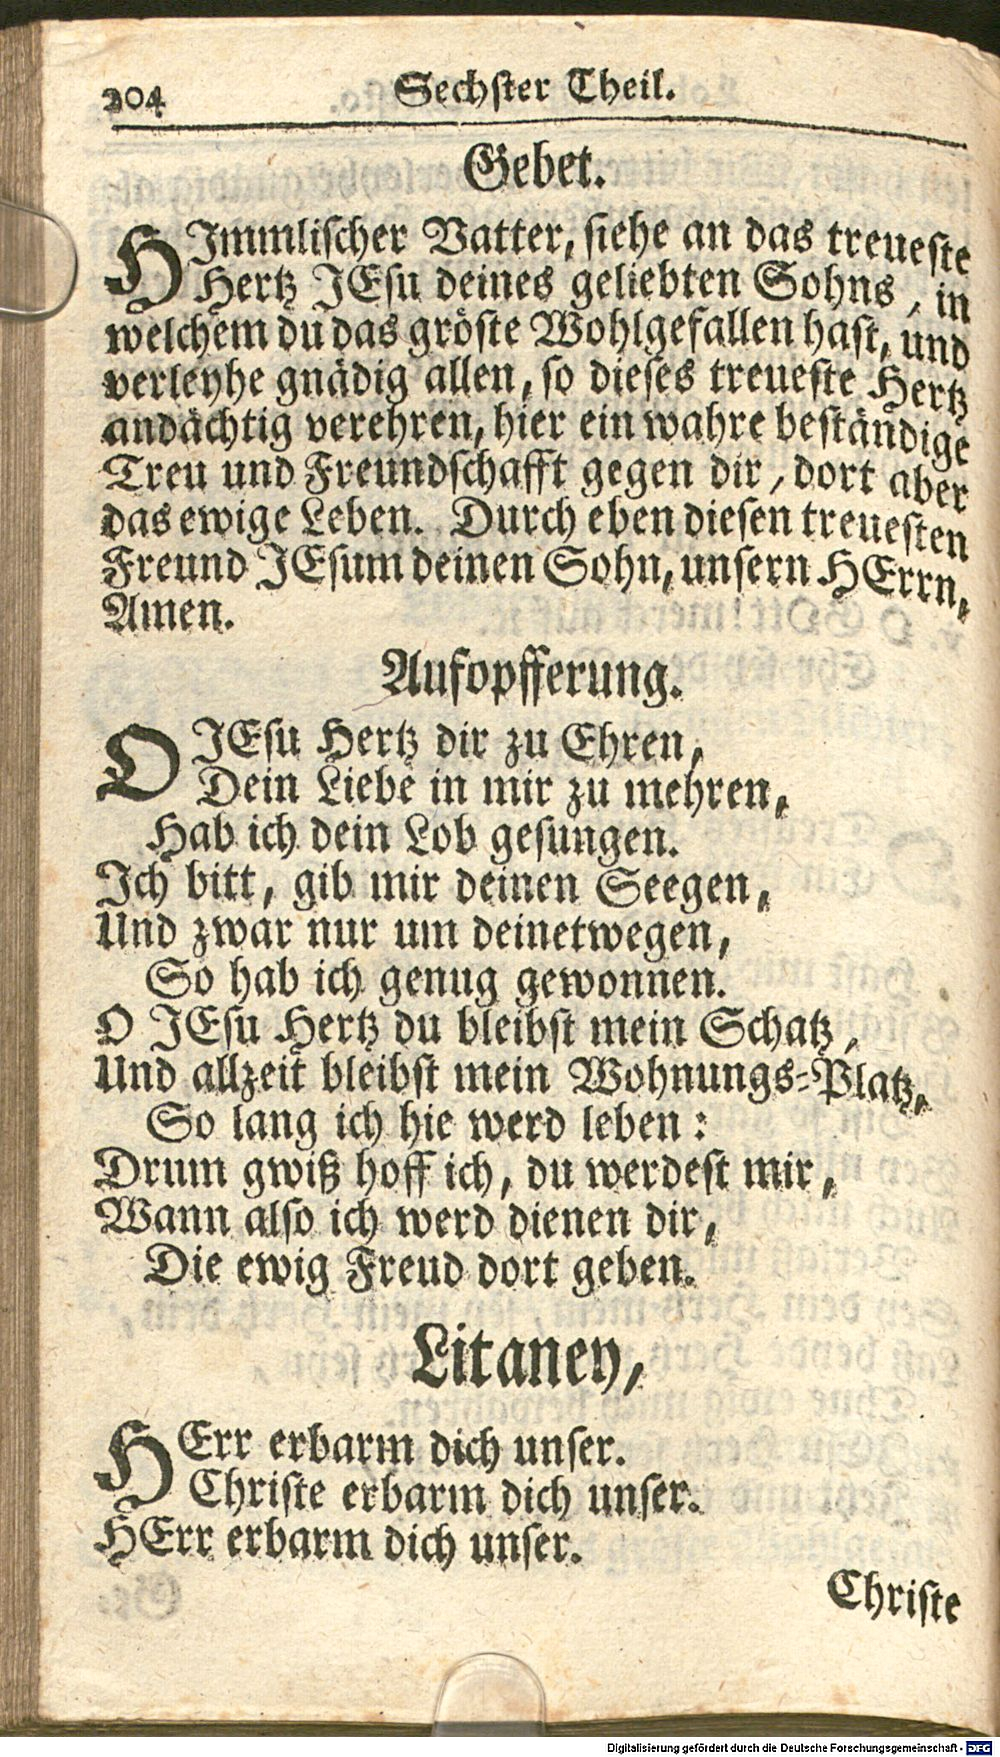 204 Sechster Theil.
Gebet.
HImmlischer Vatter, siehe an das treueste
Hertz JEsu deines geliebten Sohns, in
welchem du das gröste Wohlgefallen hast, und
verleyhe gnädig allen, so dieses treueste Hertz
andächtig verehren, hier ein wahre beständige
Treu und Freundschafft gegen dir, dort aber
das ewige Leben. Durch eben diesen treuesten
Freund JEsum deinen Sohn, unsern HErrn,
Amen.
Aufopfferung.
O JEsu Hertz dir zu Ehren,
Dein Liebe in mir zu mehren,
Hab ich dein Lob gesungen.
Ich bitt, gib mir deinen Seegen,
Und zwar nur um deinetwegen,
So hab ich genug gewonnen.
O JEsu Hertz du bleibst mein Schatz,
Und allzeit bleibst mein Wohnungs-Platz,
So lang ich hie werd leben:
Drum gwiß hoff ich, du werdest mir,
Wann also ich werd dienen dir,
Die ewig Freud dort geben.
Litaney,
HErr erbarm dich unser.
Christe erbarm dich unser.
HErr erbarm dich unser.
Christe
Digitalisierung gefördert durch die Deutsche Forschungsgemeinschaft - DFG